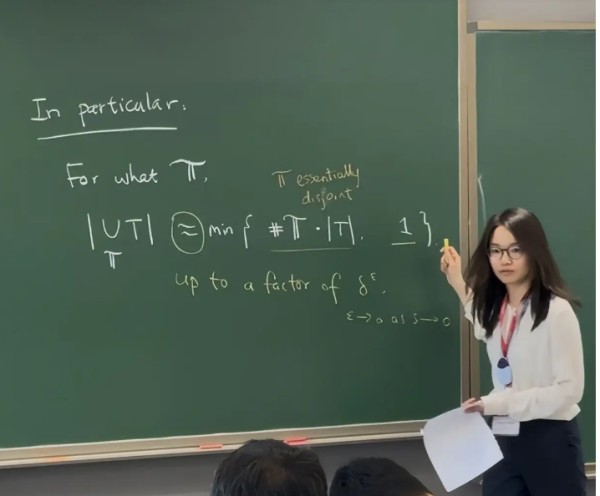 In particular:
For what 𝕋,
𝕋 essentially
disjoint
|∪T| ≈ min { #𝕋 · |T|, 1 },
𝕋
up to a factor of δ^ε.
ε → 0 as δ → 0